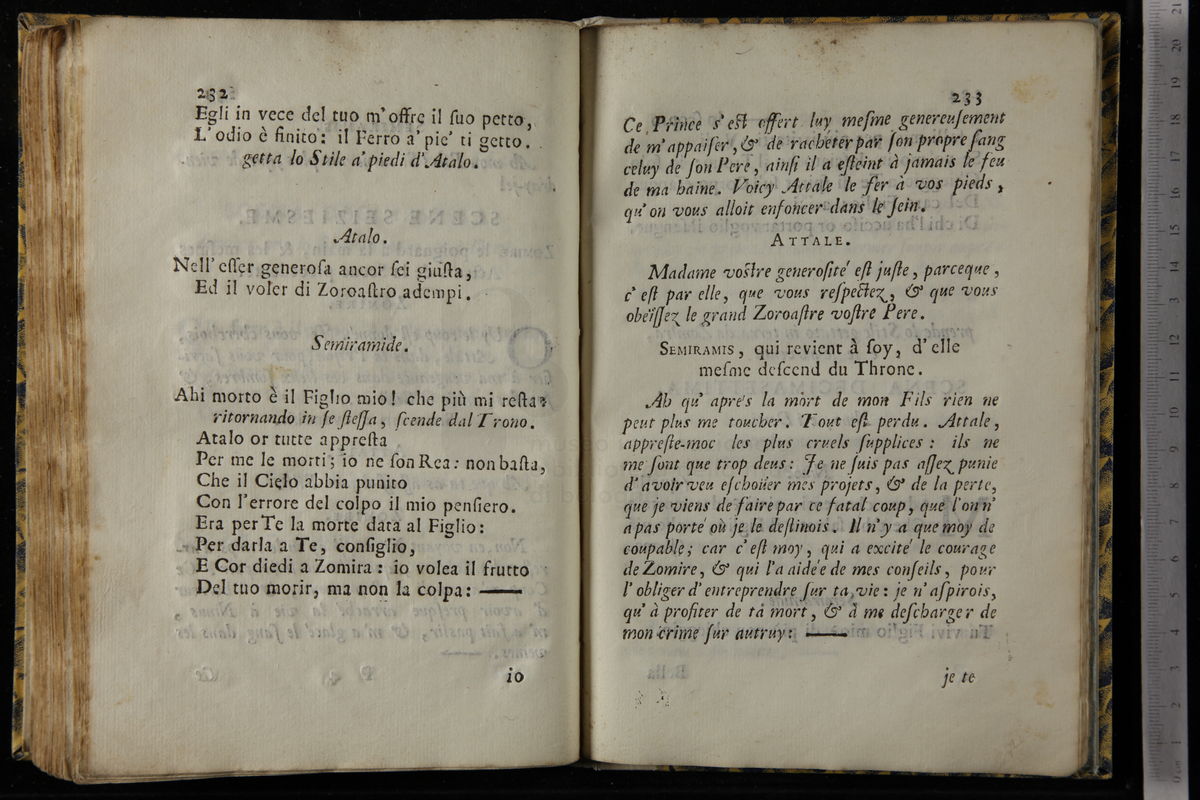 232
Egli in vece del tuo m' offre il ſuo petto,
L' odio è finito: il Ferro a' pie' ti getto.
getta lo Stile a' piedi d' Atalo.
Atalo.
Nell' eſſer generoſa ancor ſei giuſta,
Ed il voler di Zoroaſtro adempi.
Semiramide.
Ahi morto è il Figlio mio! che più mi reſta?
ritornando in ſe ſteſſa, ſcende dal Trono.
Atalo or tutte appreſta
Per me le morti; io ne ſon Rea: non baſta,
Che il Cielo abbia punito
Con l'errore del colpo il mio penſiero.
Era per Te la morte data al Figlio:
Per darla a Te, conſiglio,
E Cor diedi a Zomira: io volea il frutto
Del tuo morir, ma non la colpa: ——
io
233
Ce Prince s' eſt offert luy meſme genereuſement
de m' appaiſer, & de racheter par ſon propre ſang
celuy de ſon Pere, ainſi il a eſteint à jamais le feu
de ma haine. Voicy Attale le fer à vos pieds,
qu' on vous alloit enfoncer dans le ſein.
ATTALE.
Madame voſtre generoſité eſt juſte, parceque,
c' eſt par elle, que vous reſpectez, & que vous
obéïſſez le grand Zoroaſtre voſtre Pere.
SEMIRAMIS, qui revient à ſoy, d' elle
meſme deſcend du Throne.
Ah qu' aprés la mort de mon Fils rien ne
peut plus me toucher. Tout eſt perdu. Attale,
appreſte-moc les plus cruels ſupplices: ils ne
me ſont que trop deus: Je ne ſuis pas aſſez punie
d' avoir veu eſchoüer mes projets, & de la perte,
que je viens de faire par ce fatal coup, que l'on n'
a pas porté où je le deſtinois. Il n' y a que moy de
coupable; car c' eſt moy, qui a excité le courage
de Zomire, & qui l'a aidée de mes conſeils, pour
l' obliger d' entreprendre ſur ta vie: je n' aſpirois,
qu' à profiter de ta mort, & à me deſcharger de
mon crime ſur autruy: ——
je te